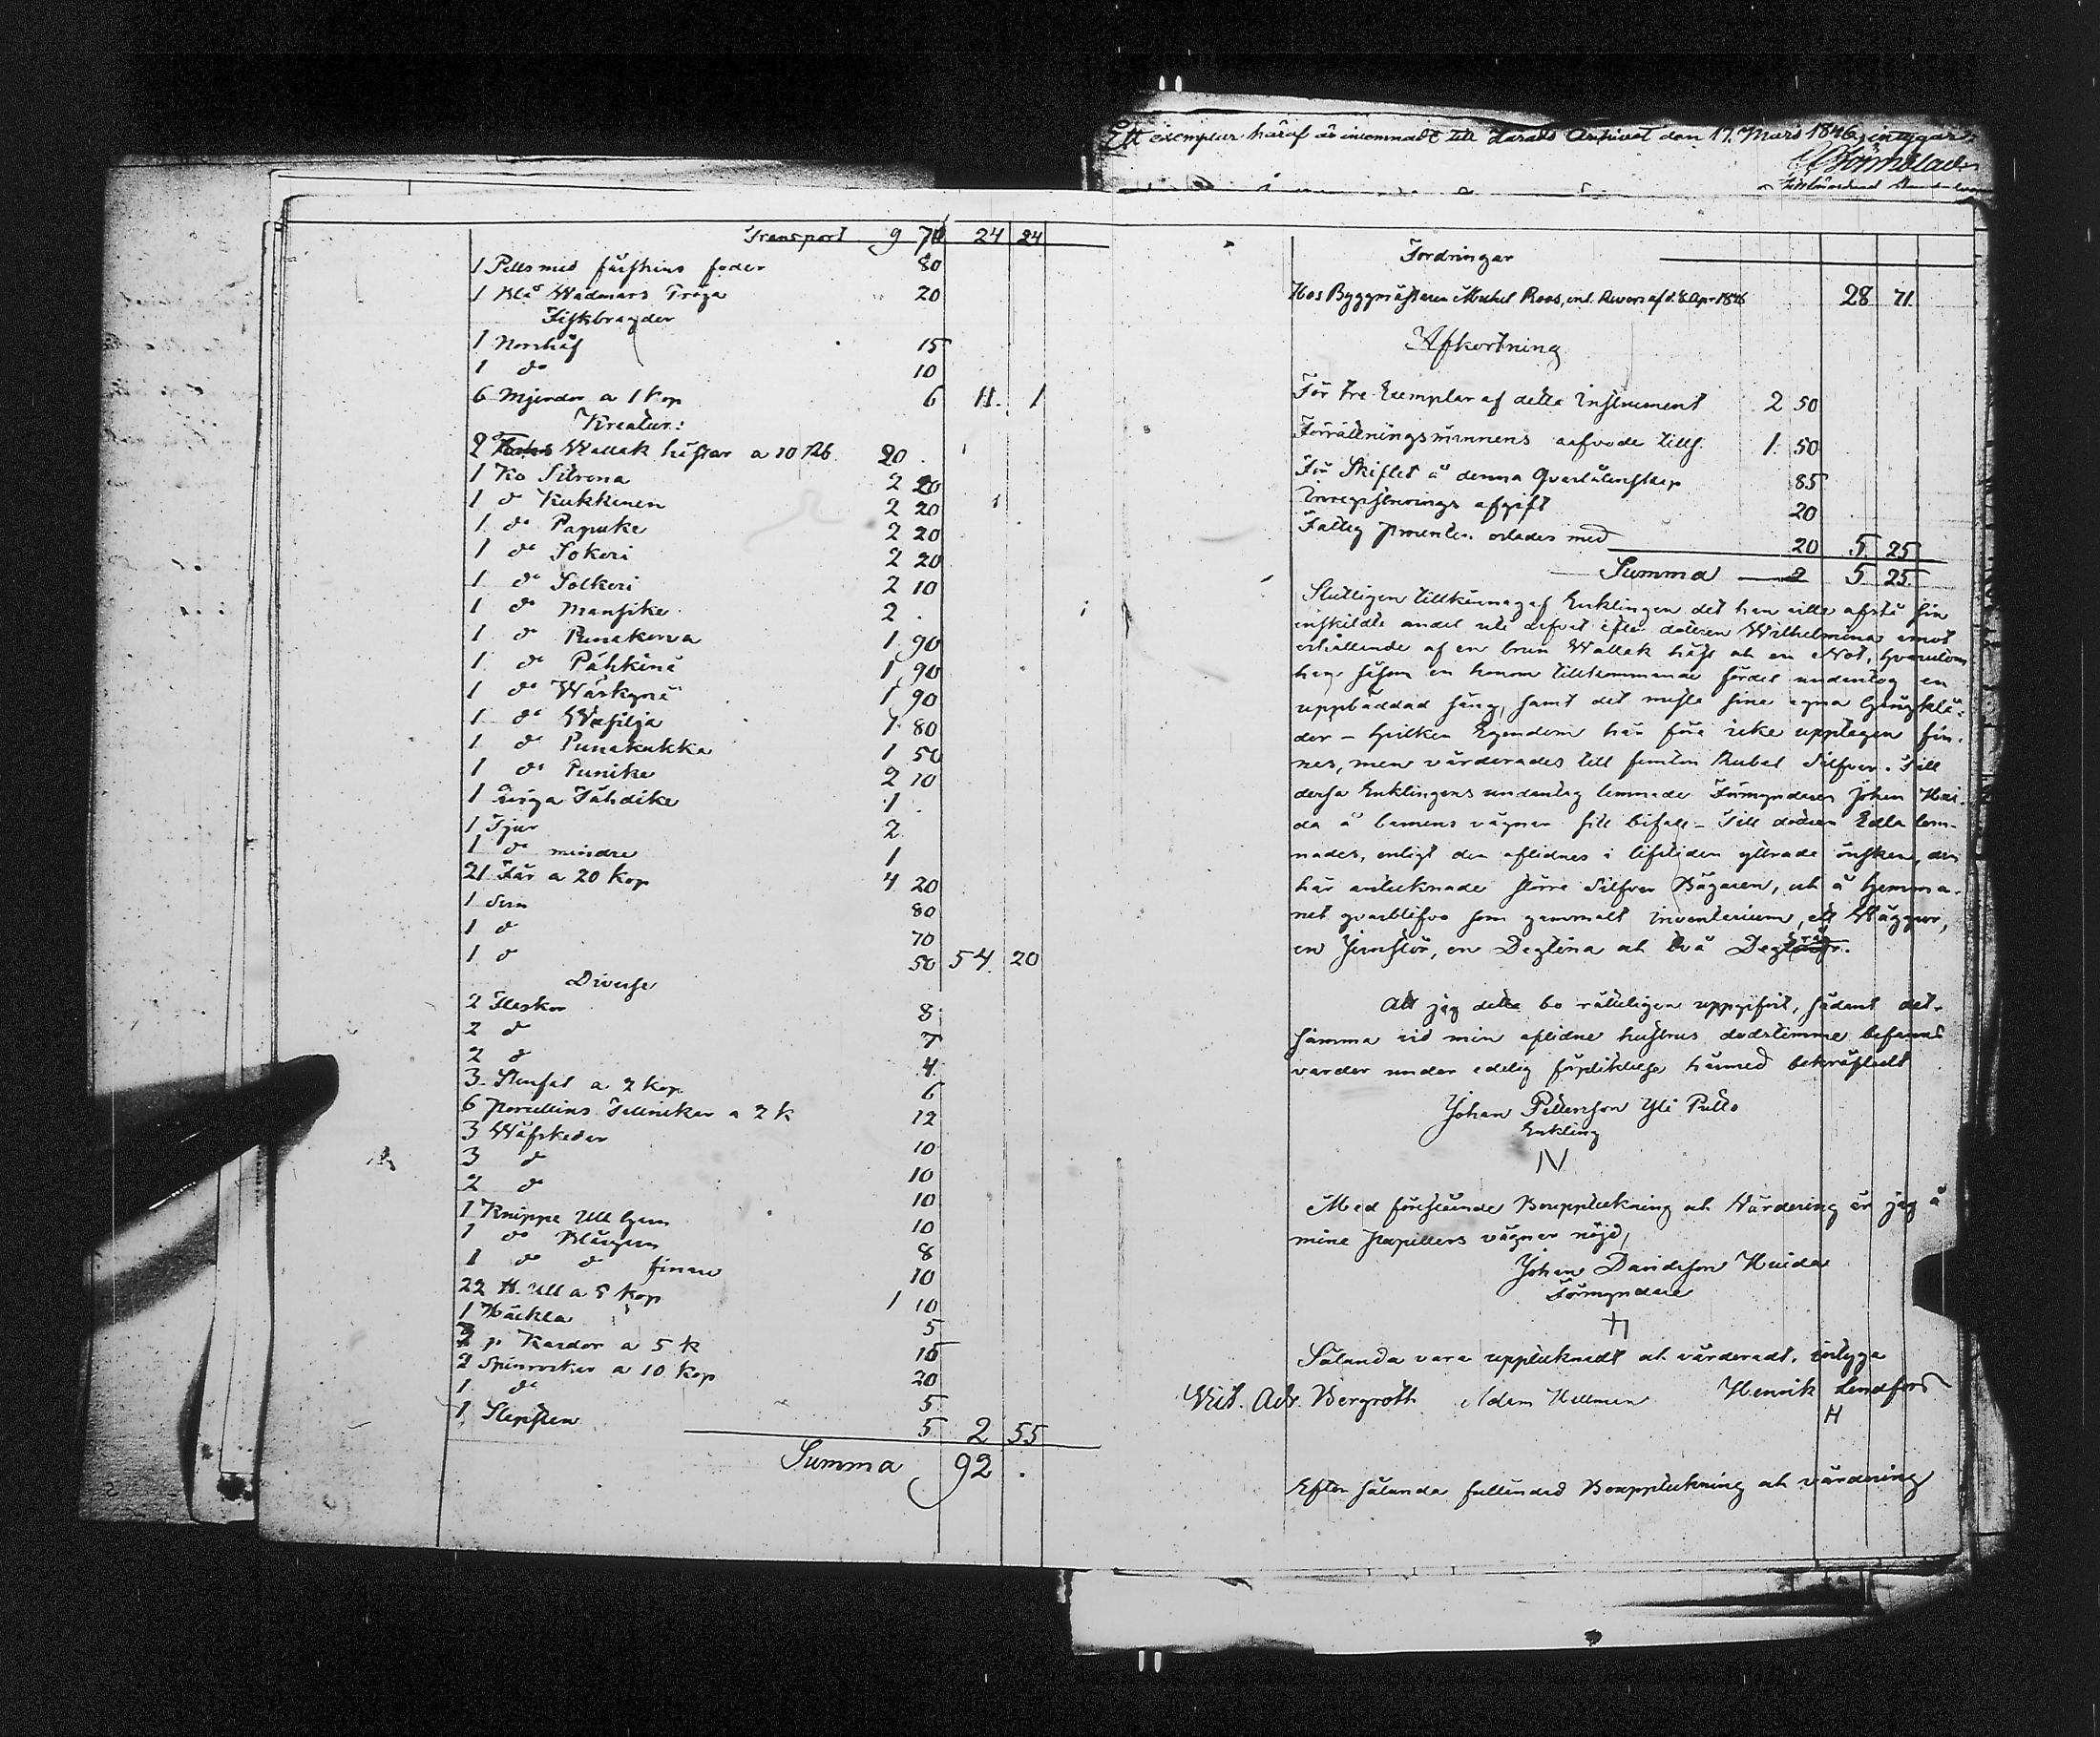 Transport 9 70 24 24
1 Pells med fårskins foder 80
1 Blå Wadmars Tröja 20
Fiskbragder
1 Norshåf 15
1 do 10
6 Mjerdor a 1 Kop 6 11. 1
Kreatur:
2 Wallak hästar a 10 Rub 20 .
1 Ko Sitrona 2 20
1 do Kukkunen 2 20
1 do Papuke 2 20
1 do Sokeri 2 20
1 do Solkeri 2 10
1 do Mansike 2 .
1 do Punakorva 1 90
1 do Pähkinä 1 90
1 do Wäskynä 1 90
1 do Wasilja 1 80
1 do Punakukka 1 50
1 do Punike 2 10
1 Qviga Tähdike 1 .
1 Tjur 2
1 do mindre 1
21 Får a 20 Kop 4 20
1 Svin 80
1 do 70
1 do 50 54. 20
Diverse
2 Flaskor 8
2 do 7
2 do 4
3 Stenfat a 2 Kop 6
6 Porcellins Tallrikar a 2 K 12
3 Wäfskedar 10
3 do 10
2 do 10
1 Knippe Ull Garn 10
1 do Blångarn 8
1 do do finare 10
22 ℔. Ull a 5 Kop 1 10
1 Häckla 5
p. Kardor a 5 K 15
2 Spinrockar a 10 Kop 20
1 do 5
1 Slepsten 5 2 55
Summa 92 .
Ett exemplar häraf är inlemnadt till Härads Arkivet den 17. Mars 1846, intygar:
Fordringar
Hos Byggmästaren Michel Roos, enl. Revers af d. 8 Apr 1846 28 71.
Afkortning
För tre Exemplar af detta Instrument 2 50
Förrättningsmännens arfvode tills. 1. 50
För Skiftet å denna Qvarlåtenskap 85
Inregistrerings afgift 20
Fattig procenten erlades med 20 5. 25
Summa 5. 25.
Slutligen tillkännagaf Enklingen det han ville afstå sin
enskildte andel uti arfvet efter dottren Wilhelmina emot
erhållande af en brun Wallak häst och en Not, hvarutom
han såsom en honom tillkommande fördel undantog en
uppbäddad säng, samt det mesta sina egna Gångklä-
der – hvilken Egendom här före icke upptagen fin-
nes, men värderades till femton Rubel Silfver. Till
dessa Enklingens undantag lemnade Förmyndaren Johan Hui-
da å barnens vägnar sitt bifall – Till dottren Edla lem-
nades, enligt den aflidnes i lifstiden yttrade önskan, den
här antecknade större Silfver Bägaren, och å Hemma-
net qvarblifva som gammalt inventarium, ett Wäggur,
en Jernstör, en Degtina och två Degtråg.
Att jag detta bo rätteligen uppgifvit, sådant det-
samma vid min aflidne hustrus dödstimme befanns
varder under edelig förpliktelse härmed bekräftadt
Johan Pettersson Yli Pullo
Enkling
Med förestående Bouppteckning och Wärdering är jag å
mine Pupillers vägnar nöjd,
Johan Davidsson Huida
Förmyndare
Sålunda vara upptecknadt och värderadt, intyga
Vict. Adr. Bergroth Adam Hellman Henrik Lendfors
H
Efter sålunda fulländad Bouppteckning och värdering